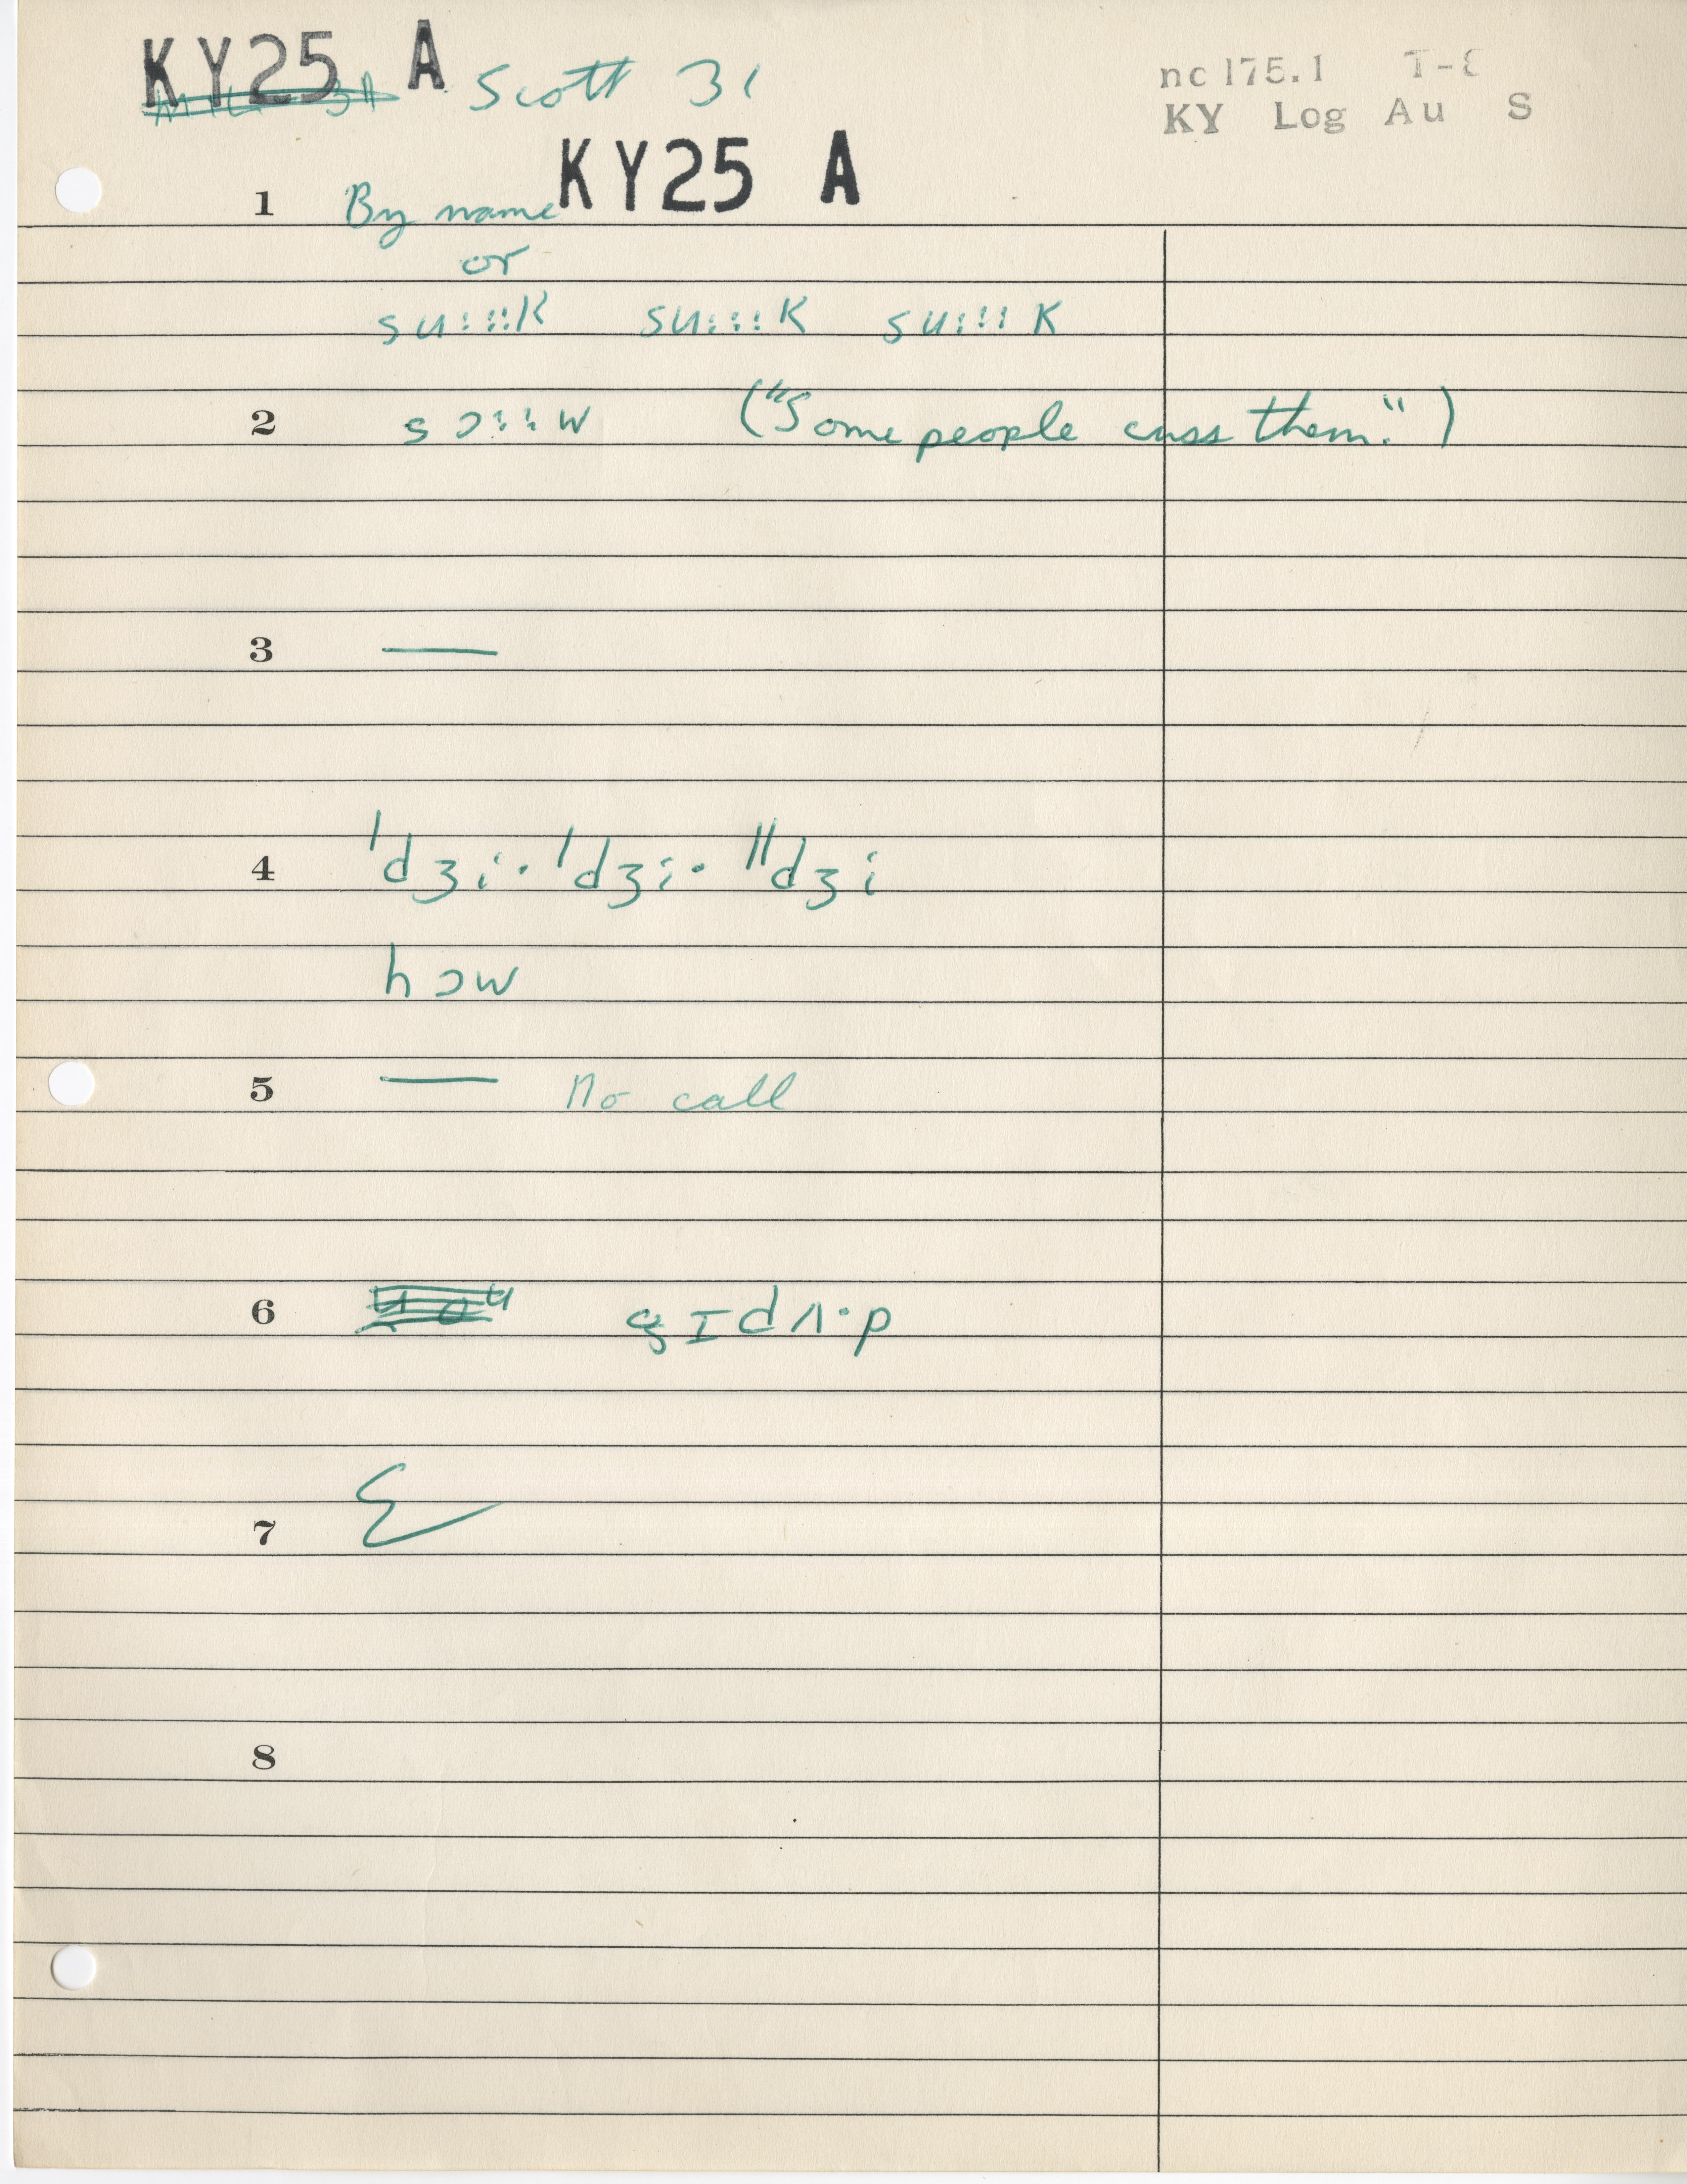 KY25 A Scott 31
nc 175.1 T-8
KY Log Au S
KY25 A
1 By name
or
su::::K su::::K su::::K
2 sɔ:::w ("Some people cuss them.")
3 —
4 ˈdʒi· ˈdʒi· ˈˈdʒi
hɔw
5 — No call
6 gɪdʌ·p
7
8